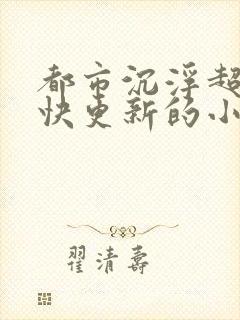 都市沉浮超
快更新的小
翟清寿